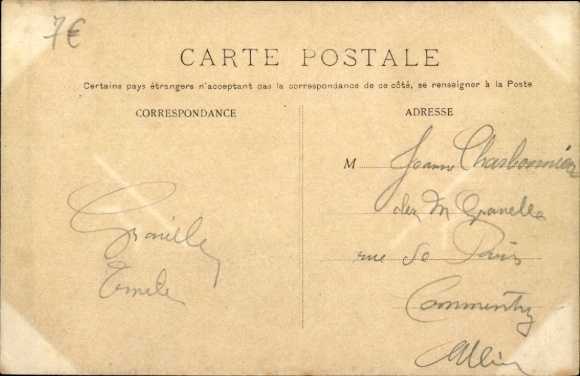 7€
CARTE POSTALE
Certains pays étrangers n'acceptant pas la correspondance de ce côté, se renseigner à la Poste
CORRESPONDANCE
ADRESSE
M Jeann Charbonnier
chez M Granella
rue de Paris
Commentry
Allier
Emile